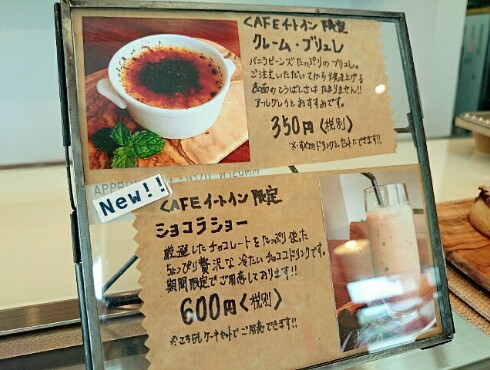 CAFEイートイン限定
クレーム・ブリュレ
バニラビーンズたっぷりのブリュレ。
ご注文いただいてから焼き上げる
表面のこうばしさはたまりません!!
アールグレイとおすすめです。
350円〈税別〉
New!!
CAFEイートイン限定
ショコラショー
厳選したチョコレートをたっぷり使た
ちょっぴり贅沢な冷たいチョコドリンクです。
期間限定でご用意しております!!
600円〈税別〉
※こちらもケーキセットでご用意できます!!